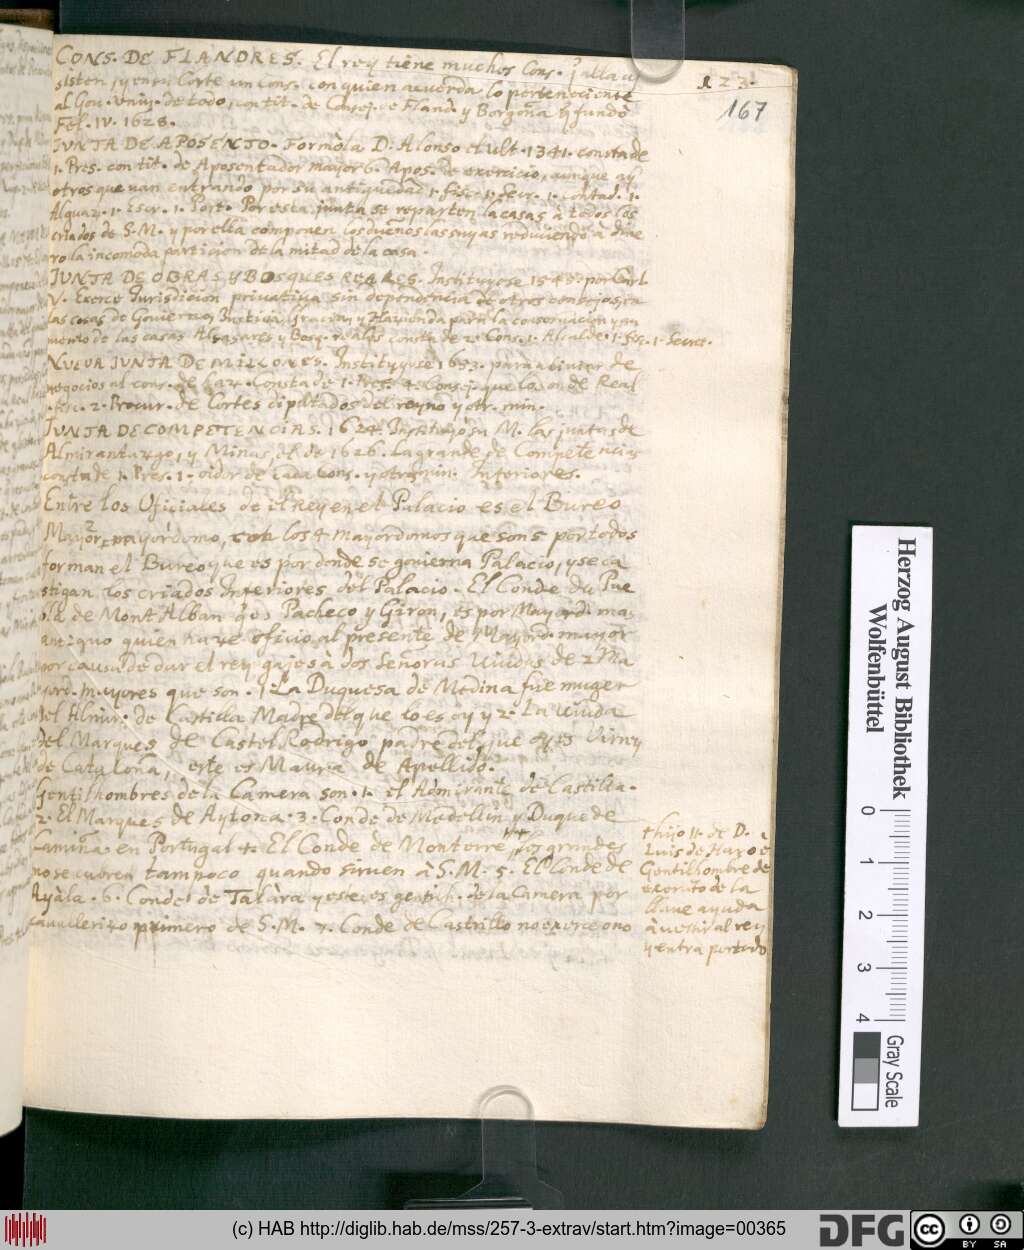 123.
167
CONS. DE FLANDRES. El rey tiene muchos Cons. q̃ alla as
sisten, y en su Corte un Cons. con quien acuerda lo perteneciente
al Gou. Vniu. de todo, con tit. de Consej. de Fland. y Borgoña q̃ fundò
Fel. IV. 1628.
JUNTA DE APOSENTO. Formòla D. Alonso el ult. 1341. consta de
1. Pres. con tit. de Aposentador mayor 6. Apos. de exercicio, aunque ay
otros que uan entrando por su antiguedad 1. Fisc. 1. Secr. 1. Contad. 1.
Alguaz. 1. Escr. 1. Port. Por esta junta se reparten las casas à todos los
criados de S. M. y por ella componen los dueños las suyas reduciendo à dine
ro la incomoda particion de la mitad de la casa.
JUNTA DE OBRAS Y BOSQUES REALES. Instituyose 1545. por Carl.
V. Exerce Jurisdicion privativa sin dependencia de otros consejos, en
las cosas de Govierno, Justicia, Gracia, y Hazienda para la conservacion y au
mento de las casas Alcazares y Bosq. reales consta de 2. Cons. 1. Alcalde. 1. Fisc. 1. Secret.
NUEVA JUNTA DE MILLONES. Instituyose 1653. para aliviar de
negocios al cons. de Haz. Consta de 1. Pres. 4. Consej. que lo son de Real
1. Fisc. 2. Procur. de Cortes diputados del reyno y otr. min.
JUNTA DE COMPETENCIAS. 1624. Instituyò su M. las juntas de
Almirantazgo, y Minas, el de 1626. La grande de Competencias
consta de 1. Pres. 1. oidor de cada Cons. y otros min. Inferiores.
Entre los Oficiales de el Rey en el Palacio es el Bureo
Mayor mayòrdomo, con los 4 mayordomos que son 5 por todos
forman el Bureo que es por donde se govierna Palacio, y se ca
stigan los criados Inferiores del Palacio. El Conde du Pue
bla de Mont Alban q̃ es Pacheco y Giron, es por Mayordomo mas
antiguo quien haze oficio al presente de Mayord. mayor
por causa de dar el rey gajes à dos Señoras Viudas de 2 Ma
yord. mayores que son. 1. La Duquesa de Medina fue muger
del Almir. de Castilla Madre del que lo es oy y 2. La viuda
del Marques de Castel Rodrigo padre del que oy es Virrey
de Cataloña, este es Maura de Apellido.
Gentilhombres de la Camera son. 1. el Admirante de Castilla.
2. El Marques de Aytona. 3. Conde de Medellin y Duque de
Camiña en Portugal 4. El Conde de Monterre los grandes
no se cubren tampoco quando siruen à S. M. 5. El Conde de
Ayàla. 6. Conde de Talàra y este es gentilh. de la Camera por
cauallerizo primero de S. M. 7. Conde de Castrillo no exerce ono
+ hijo II. de D.
Luis de Haro es
Gentilhombre de
exercito de la
llaue ayuda
à vestir al rey
y entra por todo
Herzog August Bibliothek
Wolfenbüttel
0
1
2
3
4
Gray Scale
(c) HAB http://diglib.hab.de/mss/257-3-extrav/start.htm?image=00365
DFG
cc
BY SA